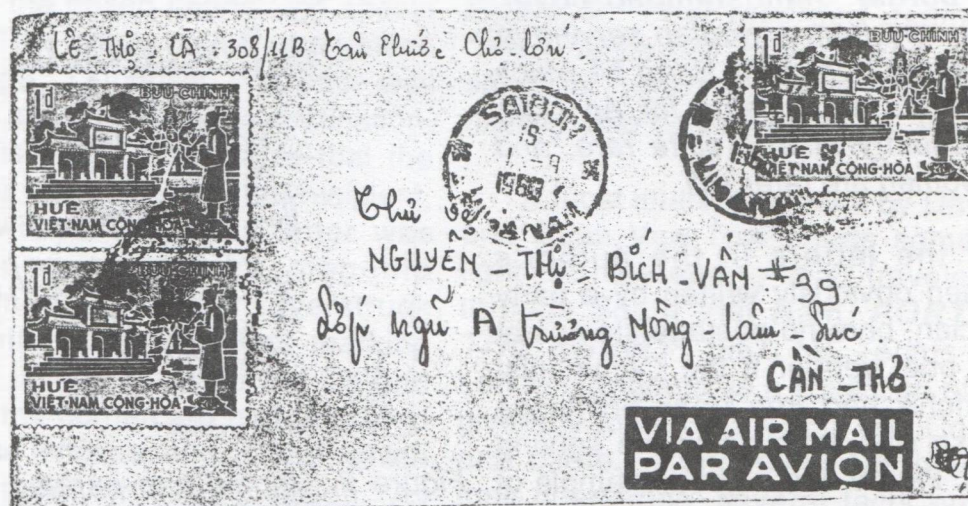 LÊ Thọ - CA - 308/11B Tân Phước Chợ-lớn
1đ BƯU-CHÍNH
HUẾ
VIỆT-NAM CỘNG-HÒA
1đ BƯU-CHÍNH
HUẾ
VIỆT-NAM CỘNG-HÒA
SAIGON
1-9
VIỆT-NAM
1đ BƯU-CHÍNH
HUẾ
VIỆT-NAM CỘNG-HÒA
Thư về
NGUYỄN - THỊ - BÍCH - VÂN #39
Lớp ngũ A trường Nông - Lâm - Súc
CẦN - THƠ
VIA AIR MAIL
PAR AVION